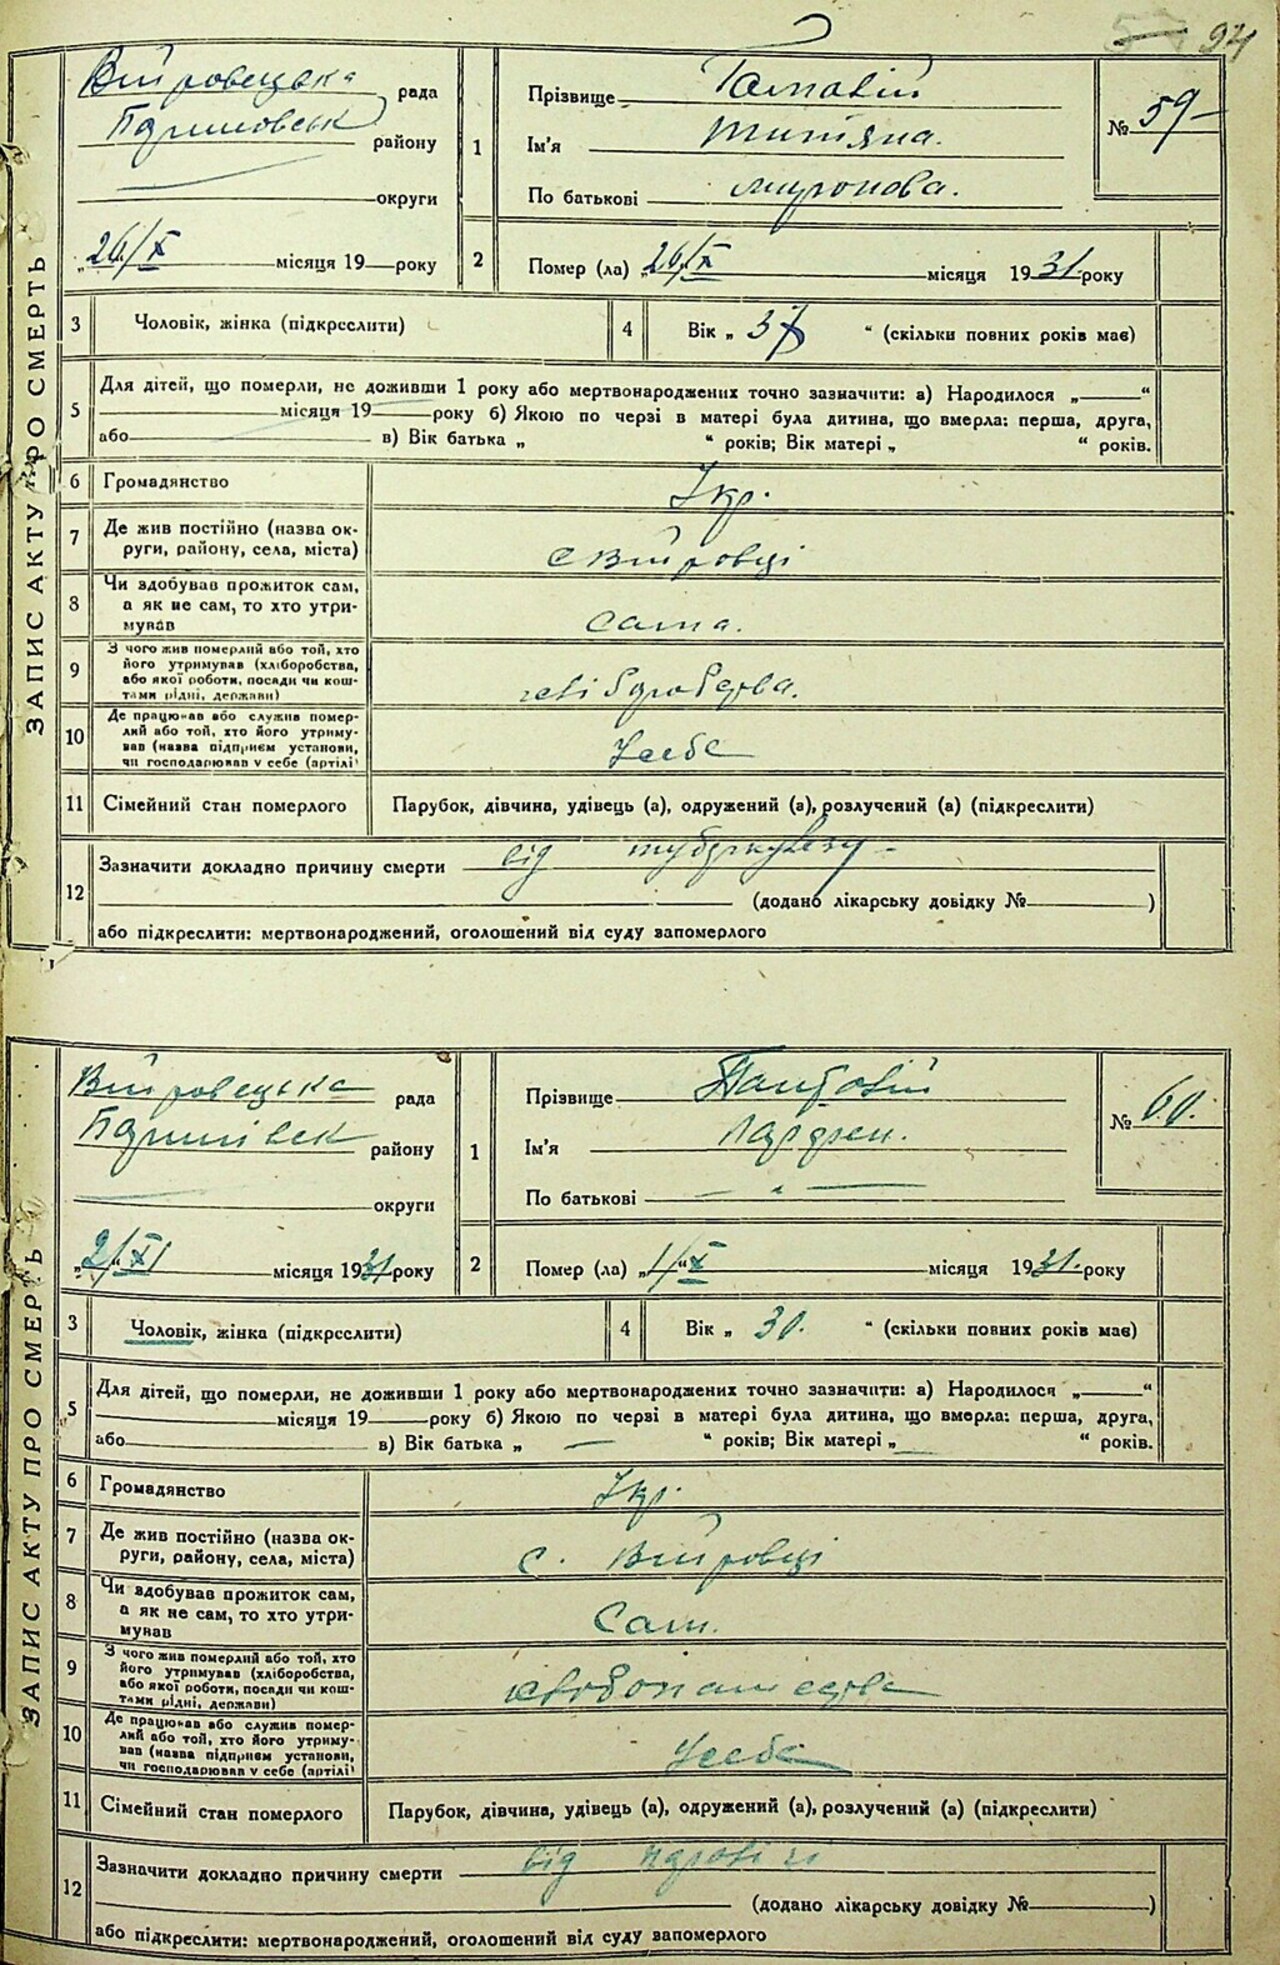 94
ЗАПИС АКТУ ПРО СМЕРТЬ
Війтовецька рада
району
округи
„26/X місяця 19 року
1
Прізвище
Ім'я Титяна.
По батькові Миронова.
№ 59
2
Помер (ла) „26/X місяця 1931 року
3 Чоловік, жінка (підкреслити)
4 Вік „ 37 “ (скільки повних років має)
5
Для дітей, що померли, не доживши 1 року або мертвонароджених точно зазначити: а) Народилося „ “
місяця 19 року б) Якою по черзі в матері була дитина, що вмерла: перша, друга,
або в) Вік батька „ “ років; Вік матері „ “ років.
6 Громадянство Укр.
7 Де жив постійно (назва ок-
руги, району, села, міста)
с Війтовці
8 Чи здобував прожиток сам,
а як не сам, то хто утри-
мував
сама.
9 З чого жив померлий або той, хто
його утримував (хліборобства,
або якої роботи, посади чи кош-
тами рідні, держави)
10 Де працював або служив помер-
лий або той, хто його утриму-
вав (назва підприєм установи,
чи господарював у себе (артілі)
Усебе
11 Сімейний стан померлого Парубок, дівчина, удівець (а), одружений (а), розлучений (а) (підкреслити)
12
Зазначити докладно причину смерти від туберкульозу
(додано лікарську довідку № )
або підкреслити: мертвонароджений, оголошений від суду запомерлого
ЗАПИС АКТУ ПРО СМЕРТЬ
Війтовецька рада
району
округи
„2/“ XI місяця 1931 року
1
Прізвище
Ім'я
По батькові
№ 60.
2
Помер (ла) „1/“ X місяця 1931. року
3 Чоловік, жінка (підкреслити)
4 Вік „ 30. “ (скільки повних років має)
5
Для дітей, що померли, не доживши 1 року або мертвонароджених точно зазначити: а) Народилося „ “
місяця 19 року б) Якою по черзі в матері була дитина, що вмерла: перша, друга,
або в) Вік батька „ “ років; Вік матері „ “ років.
6 Громадянство Укр.
7 Де жив постійно (назва ок-
руги, району, села, міста)
с. Війтовці
8 Чи здобував прожиток сам,
а як не сам, то хто утри-
мував
Сам.
9 З чого жив померлий або той, хто
його утримував (хліборобства,
або якої роботи, посади чи кош-
тами рідні, держави)
10 Де працював або служив помер-
лий або той, хто його утриму-
вав (назва підприєм установи,
чи господарював у себе (артілі)
Усебе
11 Сімейний стан померлого Парубок, дівчина, удівець (а), одружений (а), розлучений (а) (підкреслити)
12
Зазначити докладно причину смерти від
(додано лікарську довідку № )
або підкреслити: мертвонароджений, оголошений від суду запомерлого